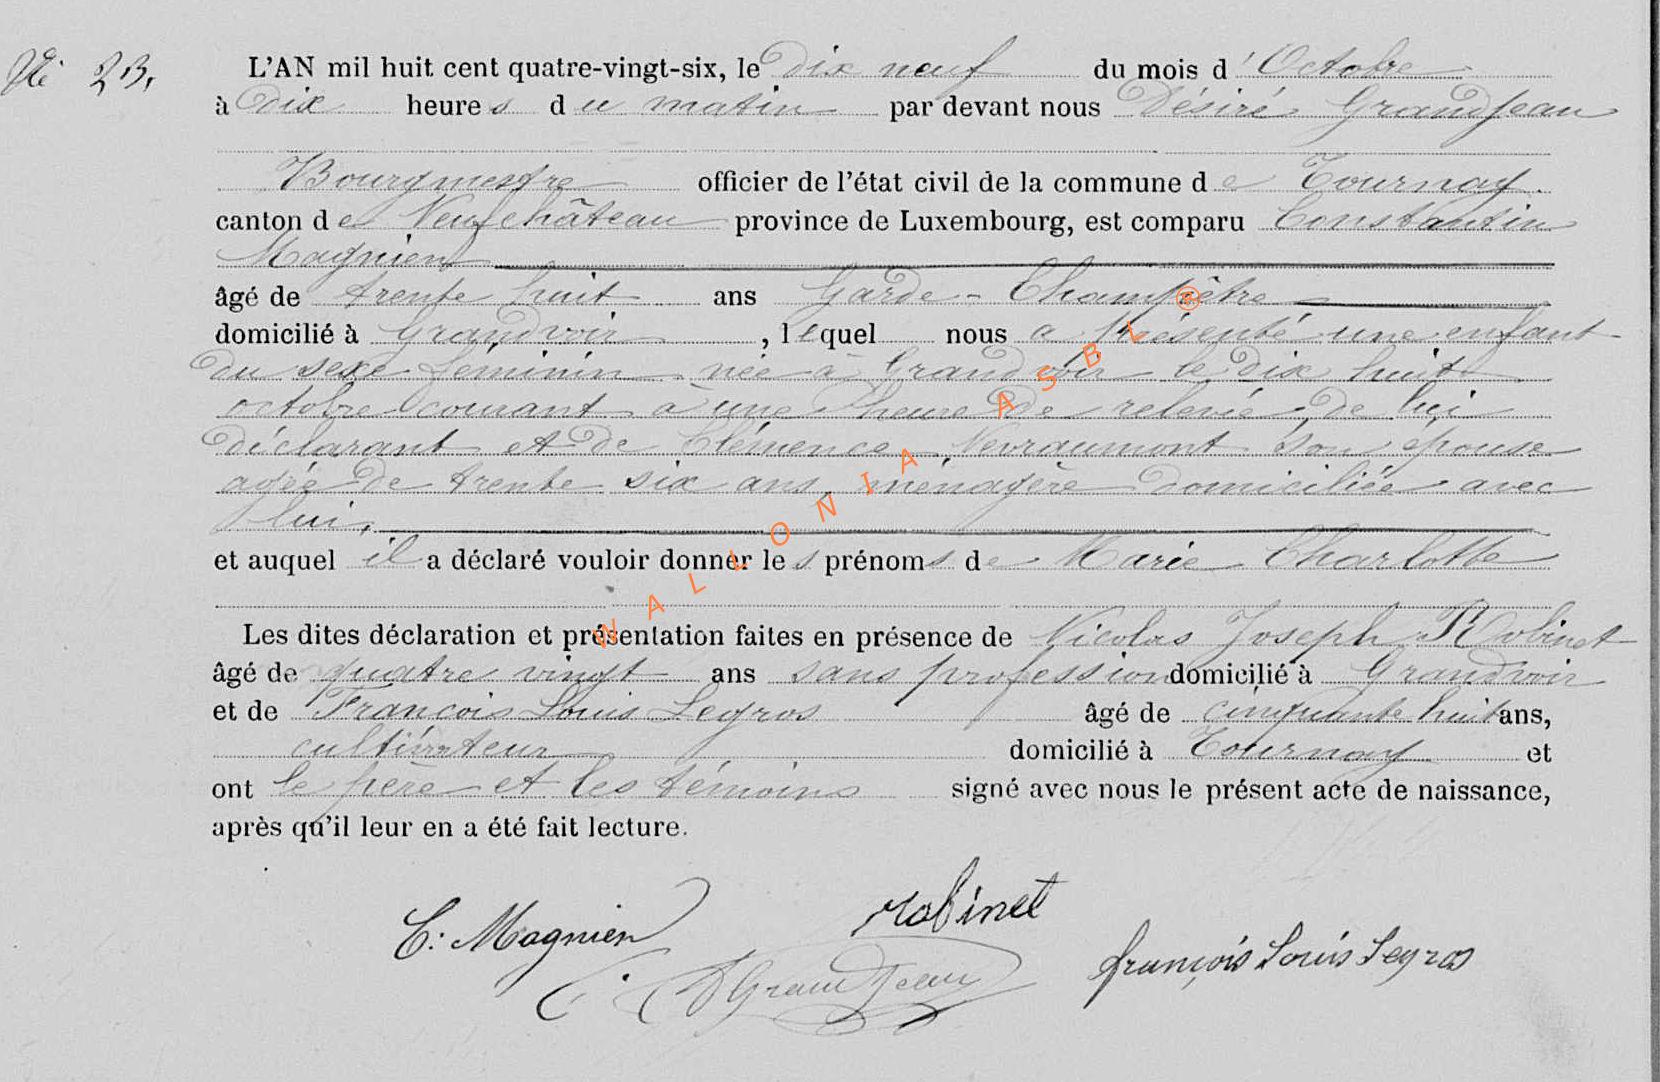 No 23.
L'AN mil huit cent quatre-vingt-six, le dix neuf du mois d'Octobre
à dix heures du matin par devant nous Désiré Grandjean
Bourgmestre officier de l'état civil de la commune de Tournay.
canton de Neufchâteau province de Luxembourg, est comparu Constantin
Magnien
âgé de trente huit ans Garde-Champêtre
domicilié à Grandvoir, lequel nous a présenté une enfant
du sexe féminin née à Grandvoir le dix huit
octobre courant à une heure de relevée, de lui
déclarant et de Clémence Nevraumont son épouse
agée de trente six ans, ménagère domiciliée avec
lui.
et auquel il a déclaré vouloir donner les prénoms de Marie Charlotte
Les dites déclaration et présentation faites en présence de Nicolas Joseph Robinet
âgé de quatre vingt ans sans profession domicilié à Grandvoir
et de François Louis Legros âgé de cinquante huit ans,
cultivateur domicilié à Tournay et
ont le père et les témoins signé avec nous le présent acte de naissance,
après qu'il leur en a été fait lecture.
C: Magnien
robinet
DGrandjean
françois Louis Legros
WALLONIA ASBL ®